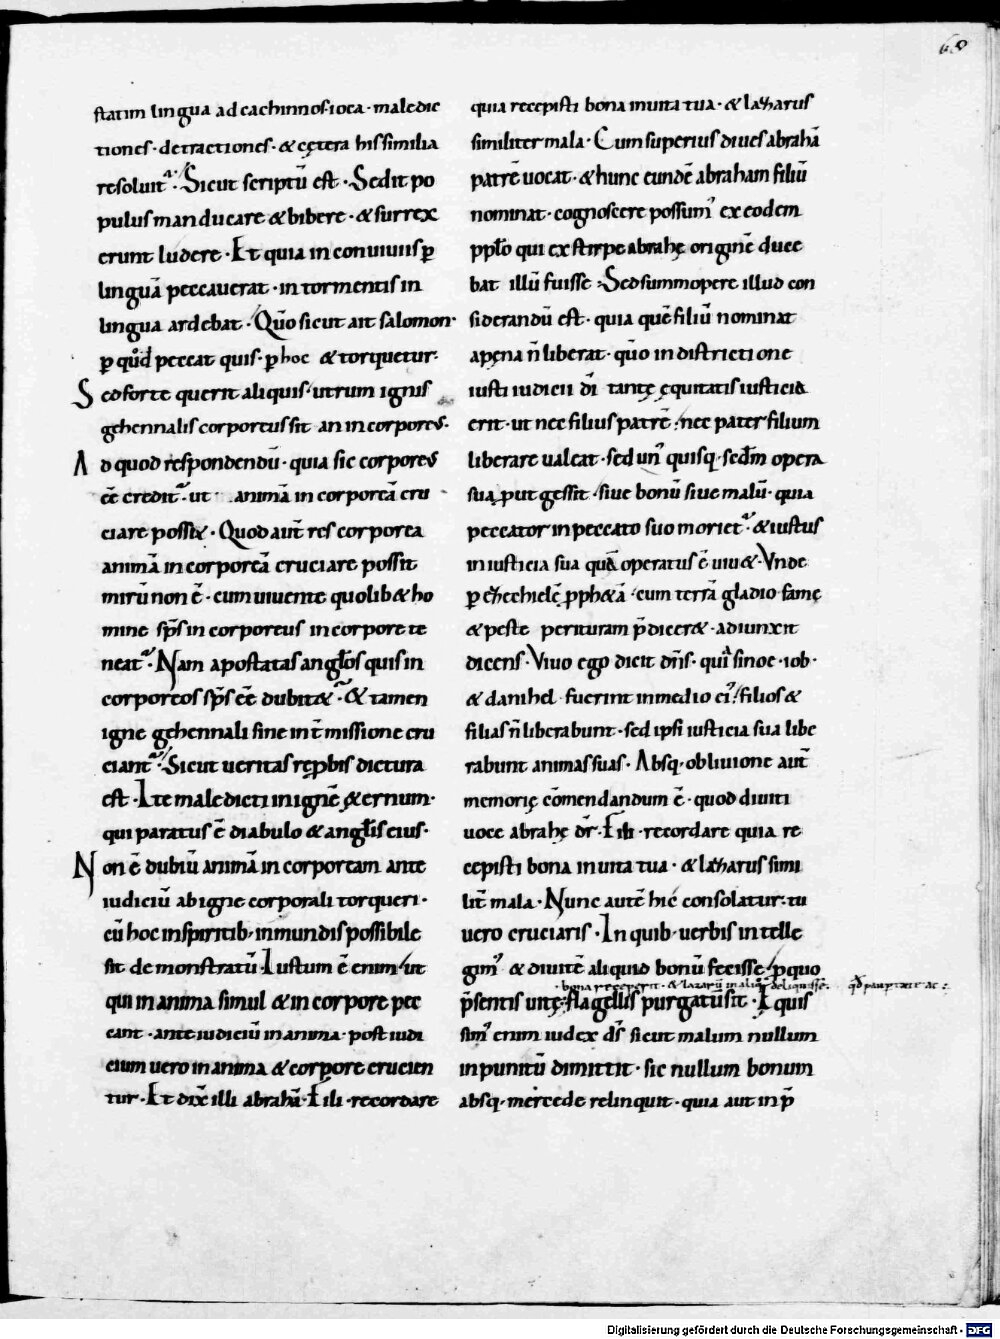 60
statim lingua ad cachinnos·ioca·maledic
tiones·detractiones·& cętera his similia
resoluit᷑·Sicut scriptū est·Sedit po
pulus manducare & bibere·& surrex
erunt ludere·Et quia in conuiuiis ꝑ
linguā peccauerat·in tormentis in
lingua ardebat·Qūo sicut ait salomon·
ꝑ qđ peccat quis·ꝑ hoc & torquetur·
Sed forte querit aliquis·utrum ignis
gehennalis corporeus sit an incorporeus·
Ad quod respondendū·quia sic corporeus
eē credit᷑·ut animā incorporeā cru
ciare possit·Quod aut̄ res corporea
animā incorporeā cruciare possit
mirū non ē·cum uiuente quolib& ho
mine sp̄s incorporeus in corpore te
neat᷑·Nam apostatas anglōs quis in
corporeos sp̄s eē dubit&᷑·& tamen
igne gehennali sine int̄missione cru
ciant᷑·Sicut ueritas reꝓbis dictura
est·Ite maledicti in ignē &ernum·
qui paratus ē diabulo & anglīs eius·
Non ē dubiū animā incorpoream ante
iudiciū ab igne corporali torqueri·
cū hoc in spiritib·inmundis possibile
sit demonstratū·Iustum ē enim·ut
qui in anima simul & in corpore pec
cant·ante iudiciū in anima·post iudi
cium uero in anima & corpore crucien
tur·Et dix̄ illi abrahā·Fili·recordare
quia recepisti bona in uita tua·& lazarus
similiter mala·Cum superius diues abrahā
patrē uocat·& hunc eundē abraham filiū
nominat·cognoscere possum᾽ ex eodem
pplō qui ex stirpe abrahę originē duce
bat illū fuisse·Sed summopere illud con
siderandū est·quia quē filiū nominat
a pęna n̄ liberat·qūo in districtione
iusti iudicii dī tantę ęquitatis iusticia
erit·ut nec filius patrē·nec pater filium
liberare ualeat·sed un᾽ quisq·sedm̄ opera
sua ꝓut gessit·siue bonū siue malū·quia
peccator in peccato suo moriet᷑·& iustus
in iusticia sua quā operatus ē uiu&·Vnde
ꝑ ezechielē ꝓph&ā·cum terrā gladio famę
& peste perituram p̄dicer&·adiunxit
dicens·Viuo ego dicit dn̄s·quia si noe·iob·
& danihel fuerint in medio ei᾽·filios &
filias n̄ liberabunt·sed ipsi iusticia sua libe
rabunt animas suas·Absq·obliuione aut̄
memorię cōmendandum ē·quod diuiti
uoce abrahę dr̄·Fili·recordare quia re
cepisti bona in uita tua·& lazarus simi
lit̄ mala·Nunc autē hic consolatur·tu
uero cruciaris·In quib·uerbis intelle
gim᾽ & diuitē aliquid bonū fecisse·ꝓ quo
·bona receperit·& lazarū in aliq᾽ deliquisse·
p̄sentis uitę·flagellis purgatus sit·Iquis
sim᾽ enim iudex ds̄ sicut malum nullum
inpunitū dimittit·sic nullum bonum
absq·mercede relinquit·quia aut in p̄
Digitalisierung gefördert durch die Deutsche Forschungsgemeinschaft - DFG